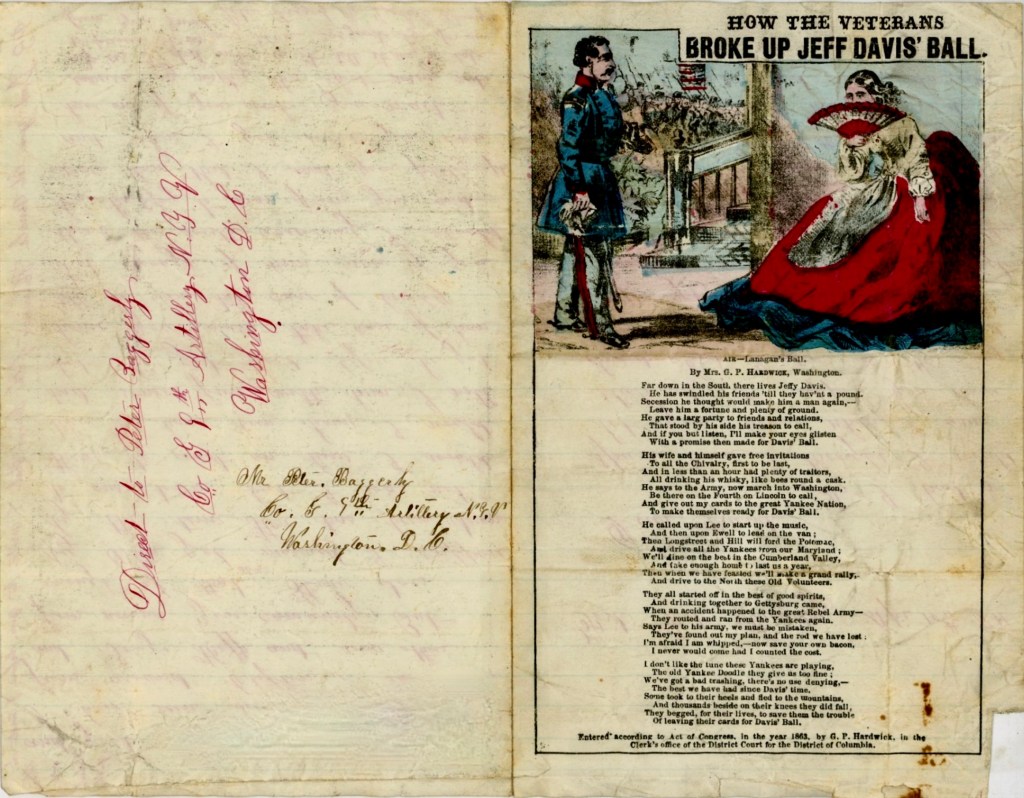 Direct to Peter Baggerly
Co G 9th Artillery N. Y. V
Washington D C
Mr Peter. Baggerly
Co. G. 9th Artillery N. Y. V
Washington, D. C.
HOW THE VETERANS
BROKE UP JEFF DAVIS' BALL.
AIR—Lanagan's Ball.
By Mrs. G. P. HARDWICK, Washington.
Far down in the South there lives Jeffy Davis.
He has swindled his friends 'till they hav'nt a pound.
Secession he thought would make him a man again,—
Leave him a fortune and plenty of ground.
He gave a larg party to friends and relations,
That stood by his side his treason to call,
And if you but listen, I'll make your eyes glisten
With a promise then made for Davis' Ball.
His wife and himself gave free invitations
To all the Chivalry, first to be last,
And in less than an hour had plenty of traitors,
All drinking his whisky, like bees round a cask.
He says to the Army, now march into Washington,
Be there on the Fourth on Lincoln to call,
And give out my cards to the great Yankee Nation,
To make themselves ready for Davis' Ball.
He called upon Lee to start up the music,
And then upon Ewell to lead on the van;
Then Longstreet and Hill will ford the Potomac,
And drive all the Yankees from our Maryland;
We'll dine on the best in the Cumberland Valley,
And take enough home to last us a year,
Then when we have feasted we'll make a grand rally,
And drive to the North these Old Volunteers.
They all started off in the best of good spirits,
And drinking together to Gettysburg came,
When an accident happened to the great Rebel Army—
They routed and ran from the Yankees again.
Says Lee to his army, we must be mistaken,
They've found out my plan, and the rod we have lost;
I'm afraid I am whipped,—now save your own bacon,
I never would come had I counted the cost.
I don't like the tune these Yankees are playing,
The old Yankee Doodle they give us too fine;
We've got a bad trashing, there's no use denying,—
The best we have had since Davis' time.
Some took to their heels and fled to the mountains,
And thousands beside on their knees they did fall,
They begged, for their lives, to save them the trouble
Of leaving their cards for Davis' Ball.
Entered according to Act of Congress, in the year 1863, by G. P. Hardwick, in the
Clerk's office of the District Court for the District of Columbia.